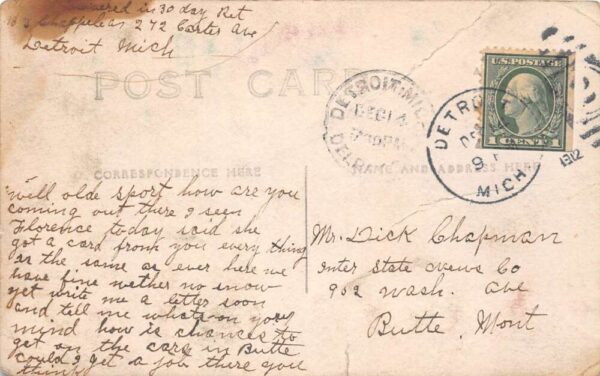 answered in 30 day Ret
Chappele as 272 Carter Ave
Detroit Mich
POST CARD
DETROIT, MICH.
DEC 14
DETROIT
MICH.
1912
U.S. POSTAGE
1 CENT 1
CORRESPONDENCE HERE
NAME AND ADDRESS HERE
"well olde sport how are you
coming out there I seen
Florence today said she
got a card from you every thing
ar the same as ever here we
have fine wether no snow
yet write me a letter soon
and tell me whats on your
mind how is chances to
get on the cars in Butte
could I get a job there you
think
Mr. Dick Chapman
inter State News Co
902 Wash. Ave
Butte, Mont